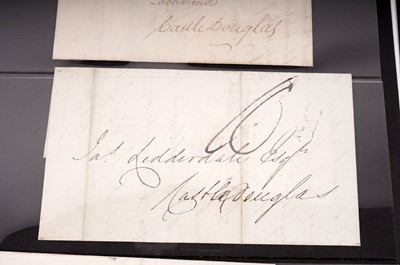 Castle Douglas
6
Jas. Lidderdale Esqr
Castle Douglas